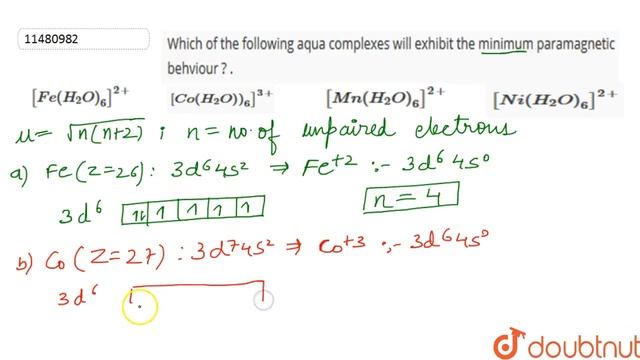 11480982
Which of the following aqua complexes will exhibit the minimum paramagnetic
behviour ? .
[Fe(H₂O)₆]²⁺ [Co(H₂O))₆]³⁺ [Mn(H₂O)₆]²⁺ [Ni(H₂O)₆]²⁺
μ = √n(n+2) ; n = no. of unpaired electrons
a) Fe (Z=26) : 3d⁶ 4s² ⇒ Fe⁺² :- 3d⁶ 4s⁰
3d⁶ 1↓ 1 1 1 1 n = 4
b) Co (Z=27) : 3d⁷ 4s² ⇒ Co⁺³ :- 3d⁶ 4s⁰
3d⁶
doubtnut